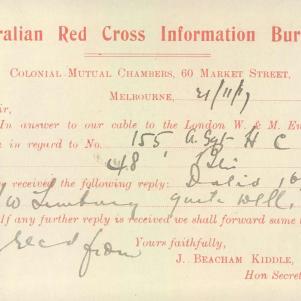 ralian Red Cross Information Bur
COLONIAL MUTUAL CHAMBERS, 60 MARKET STREET,
MELBOURNE, 21/11/17
ir,
In answer to our cable to the London W. & M. En
n in regard to No. 155 A. Sgt H C
48
ay received the following reply: 16
quite well.
If any further reply is received we shall forward same t
Recd from Yours faithfully,
J. BEACHAM KIDDLE,
Hon Secret